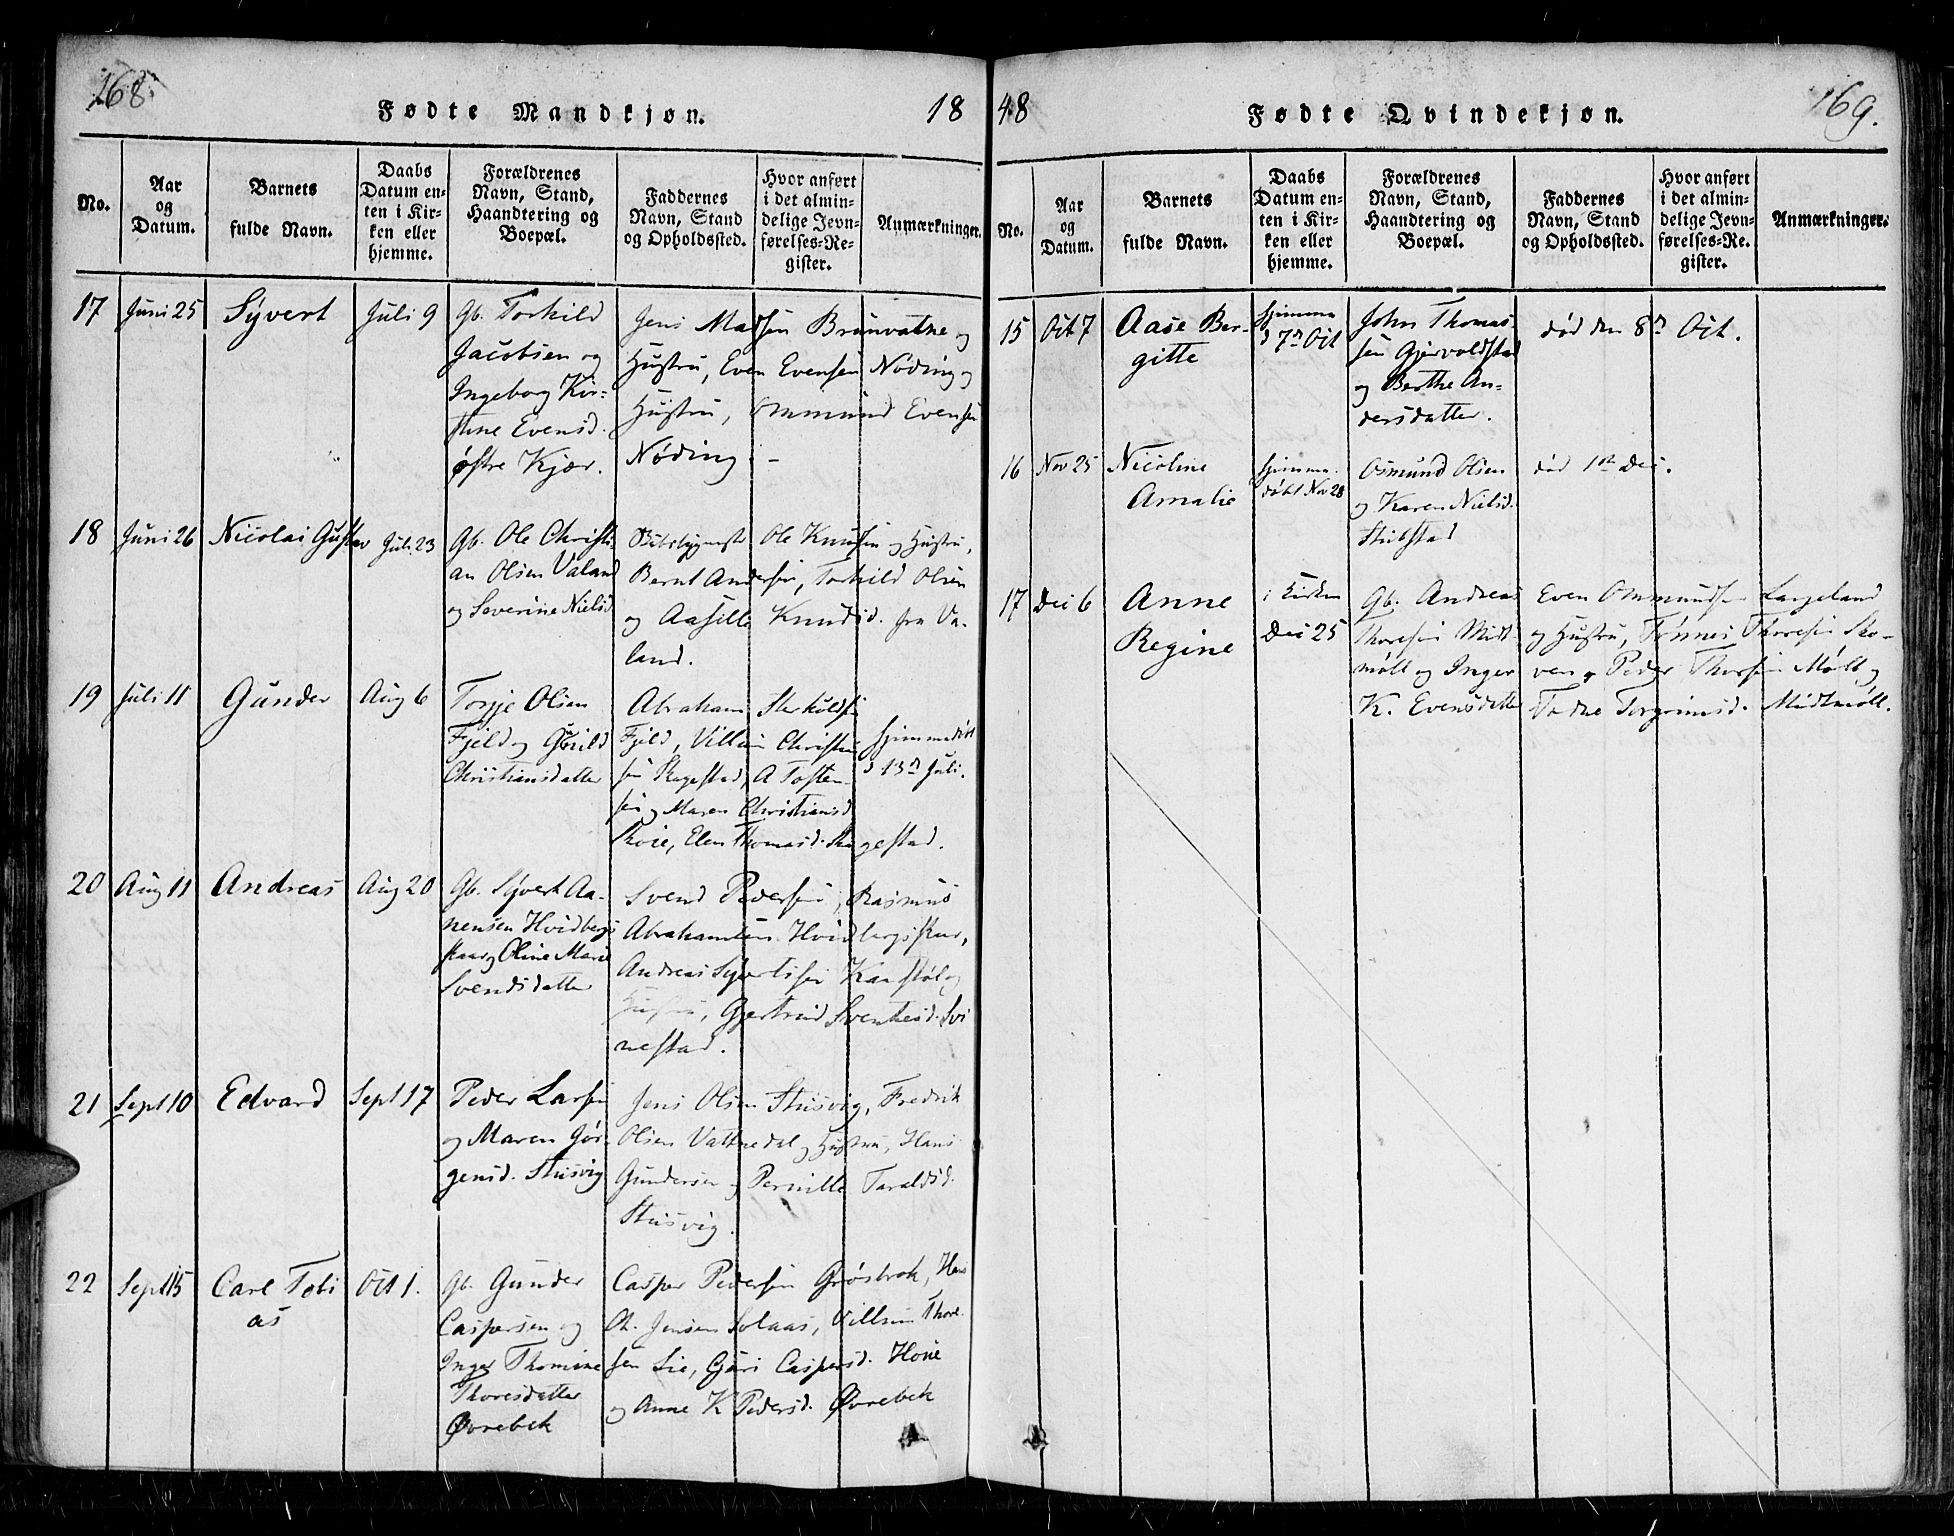 168.
Fødte Mandkjøn.
18
No.
Aar og Datum.
Barnets fulde Navn.
Daabs Datum enten i Kirken eller hjemme.
Forældrenes Navn, Stand, Haandtering og Boepæl.
Faddernes Navn, Stand og Opholdssted.
Hvor anført i det almindelige Jevnførelses-Register.
Anmærkninger.
17 Juni 25 Syvert Juli 9
Gb. Torkild
Jacobsen og
Ingeborg Kir-
stine Evensd.
østre Kjær.
Jens Madsen Brunvatne og
Hustru, Even Evensen Nøding og
Hustru, Ommund Evensen
Nøding -
18 Juni 26 Nicolai Gustav Juli 23
Gb. Ole Christi-
an Olsen Valand
og Severine Nielsd
Ole Knudsen og Hustru,
Bernt Andersen, Torkild Olsen
og Aasille Knudsd. fra Va-
land.
19 Juli 11 Gunder Aug 6
Tonje Olsen
Fjeld og Gunild
Christiansdatter
Abraham Sterkuldsen
Fjeld, Villum Christen
sen Skagestad, A Tosten-
sen, Maren Christiansd
Skoie, Elen Thomasd. Skagestad.
hjemmedøbt
d 13de Juli.
20 Aug 11 Andreas Aug 20
Gb. Syvert Aa-
nensen Hvidbergs
skaar og Oline Marie
Svendsdatter
Svend Pedersen, Rasmus
Abrahamsen Hvidbergskar,
Andreas Syvertsen Karstøl og
Hustru, Gjertrud Svenkesd. Svi
nestad.
21 Sept 10 Edvard Sept 17
Peder Larsen
og Maren Jør-
gensd. Stusvig
Jens Olsen Stusvig, Fredrik
Olsen Vatnedal og Hustru, Hans
Gundersen og Pernille Taraldsd.
Stusvig.
22 Sept 15 Carl Tobi
as
Oct 1.
Gb. Gunder
Caspersen og
Inger Thomine
Thoresdatter
Øvrebek
Casper Pedersen Grøsbrok, Hans
Ch. Jensen Solaas, Villum Thor-
sen Lie, Gjuri Caspersd. Hoie
og Anne K Pedersd. Øvrebek
48
Fødte Qvindekjøn.
169.
No.
Aar og Datum.
Barnets fulde Navn.
Daabs Datum enten i Kirken eller hjemme.
Forældrenes Navn, Stand, Haandtering og Boepæl.
Faddernes Navn, Stand og Opholdssted.
Hvor anført i det almindelige Jevnførelses-Register.
Anmærkninger.
15 Oct 7 Aase Ber-
gitte
hjemme
d 7de Oct
John Thomas-
sen Gjervoldstad
og Berthe An-
dersdatter.
død den 8de Oct.
16 Nov 25 Nicoline
Amalie
hjemme
døbt Nov 28
Osmund Olsen
og Karen Nielsd.
Stubstad
død 1ste Dec.
17 Dec 6 Anne
Regine
i Kirken
Dec 25
Gb. Andreas
Thoresen Midt-
møll og Inger
K. Evensdatter
Even Ommundsen Langeland
og Hustru, Tønnes Thoresen Sko-
ven, Peder Thorsen Møll og
Tadne Torgrimsd. Midtmøll.